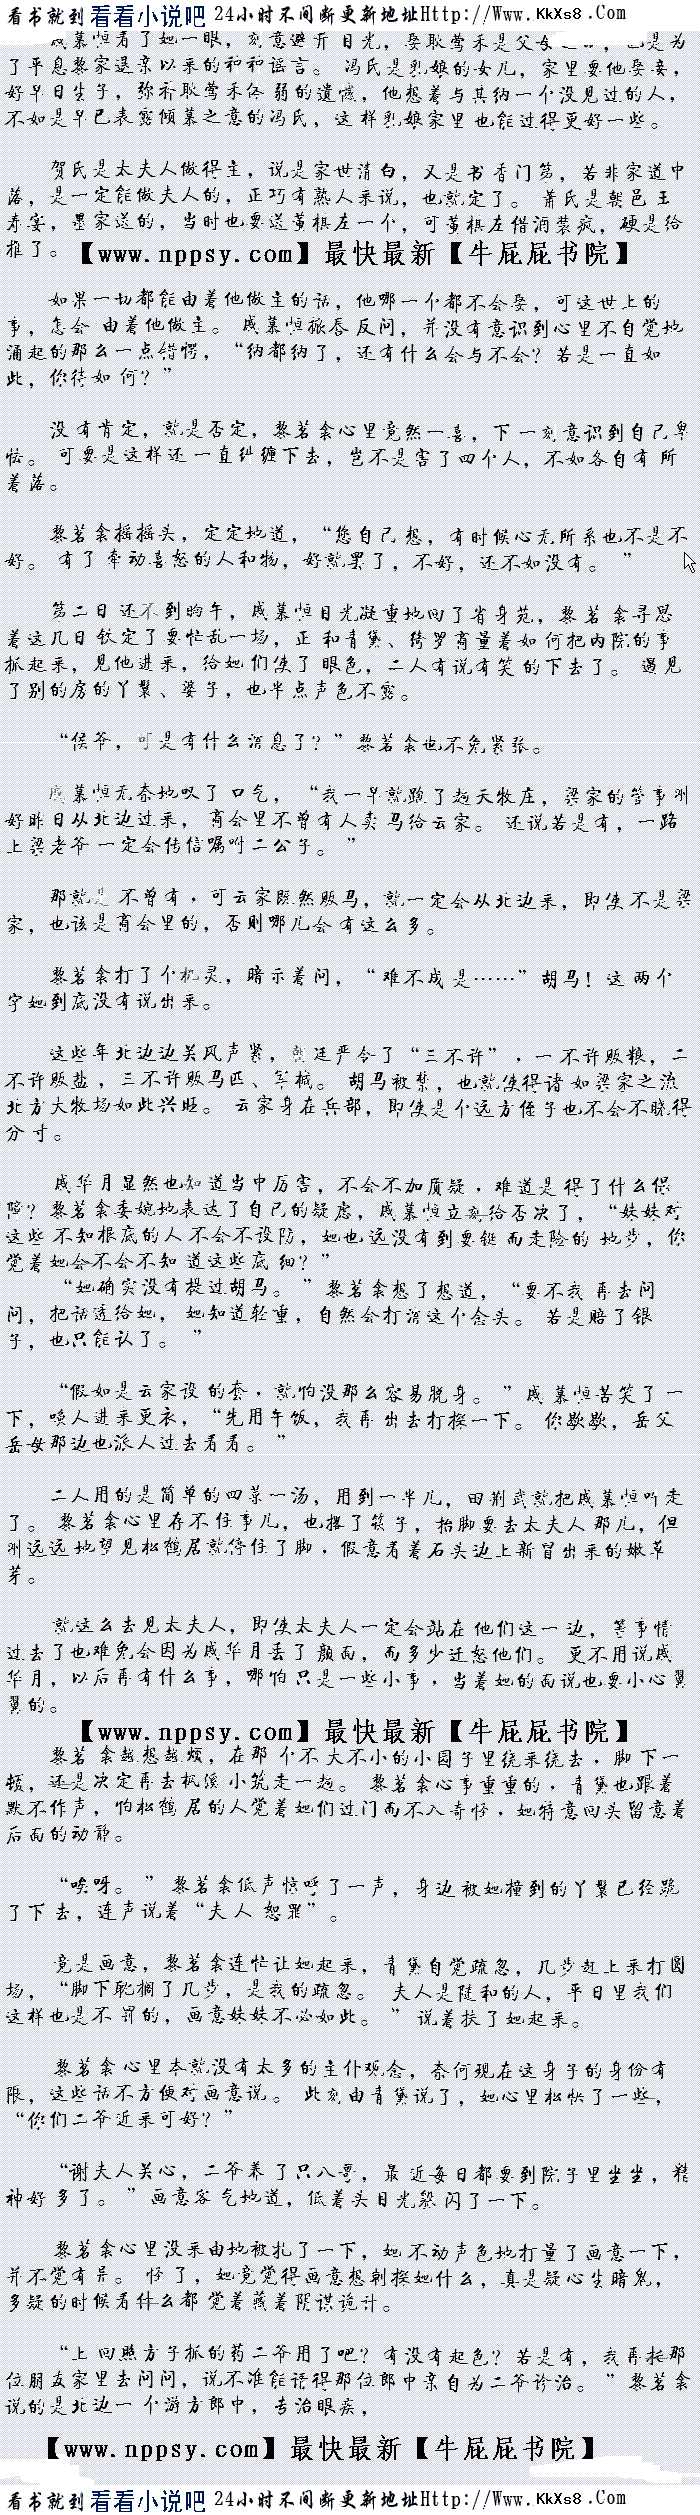 看书就到 看看小说吧 24小时不间断更新地址Http://Www.KkXs8.Com
戚慕恒看了她一眼，刻意避开目光，娶耿莺禾是父母之命，也是为
了平息黎家退亲以来的种种谣言。 冯氏是乳娘的女儿，家里要他娶妾，
好早日生子，弥补耿莺禾体弱的遗憾，他想着与其纳一个没见过的人，
不如是早已表露倾慕之意的冯氏，这样乳娘家里也能过得更好一些。
贺氏是太夫人做得主，说是家世清白，又是书香门第，若非家道中
落，是一定能做夫人的，正巧有熟人来说，也就定了。 萧氏是朝邑王
寿宴，墨家送的，当时也要送黄棋左一个，可黄棋左借酒装疯，硬是给
推了。 【www.nppsy.com】最快最新【牛屁屁书院】
如果一切都能由着他做主的话，他哪一个都不会娶，可这世上的
事，怎会 由着他做主。 戚慕恒抿唇反问，并没有意识到心里不自觉地
涌起的那么一点错愕，“纳都纳了，还有什么会与不会？若是一直如
此，你待如何？”
没有肯定，就是否定，黎茗衾心里竟然一喜，下一刻意识到自己卑
怯。 可要是这样还一直纠缠下去，岂不是害了四个人，不如各自有所
着落。
黎茗衾摇摇头，定定地道，“您自己想，有时候心无所系也不是不
好。 有了牵动喜怒的人和物，好就罢了，不好，还不如没有。 ”
第二日还不到晌午，戚慕恒目光凝重地回了省身苑，黎茗衾寻思
着这几日钦定了要忙乱一场，正和青黛、绮罗商量着如何把内院的事
抓起来，见他进来，给她们使了眼色，二人有说有笑的下去了。 遇见
了别的房的丫鬟、婆子，也半点声色不露。
“侯爷，可是有什么消息了？”黎茗衾也不免紧张。
戚慕恒无奈地叹了口气，“我一早就跑了趟天牧庄，梁家的管事刚
好昨日从北边过来，商会里不曾有人卖马给云家。 还说若是有，一路
上梁老爷一定会传信嘱咐二公子。”
那就是不曾有，可云家既然贩马，就一定会从北边来，即使不是梁
家，也该是商会里的，否则哪儿会有这么多。
黎茗衾打了个机灵，暗示着问，“难不成是……”胡马！这两个
字她到底没有说出来。
这些年北边边关风声紧，朝廷严令了“三不许”，一不许贩粮，二
不许贩盐，三不许贩马匹、军械。 胡马被禁，也就使得诸如梁家之流
北方大牧场如此兴旺。 云家身在兵部，即使是个远方侄子也不会不晓得
分寸。
戚华月显然也知道当中厉害，不会不加质疑，难道是得了什么保
障？黎茗衾委婉地表达了自己的疑虑，戚慕恒立刻给否决了，“妹妹对
这些不知根底的人不会不设防，她也远没有到要铤而走险的地步，你
觉着她会不会不知道这些底细？”
“她确实没有提过胡马。”黎茗衾想了想道，“要不我再去问
问，把话透给她，她知道轻重，自然会打消这个念头。 若是赔了银
子，也只能认了。 ”
“假如是云家设的套，就怕没那么容易脱身。”戚慕恒苦笑了一
下，唤人进来更衣，“先用午饭，我再出去打探一下。 你歇歇，岳父
岳母那边也派人过去看看。”
二人用的是简单的四菜一汤，用到一半儿，田荆武就把戚慕恒叫走
了。 黎茗衾心里存不住事儿，也撂了筷子，抬脚要去太夫人那儿，但
刚远远地望见松鹤居就停住了脚，假意看着石头边上新冒出来的嫩草
芽。
就这么去见太夫人，即使太夫人一定会站在他们这一边，等事情
过去了也难免会因为戚华月丢了颜面，而多少迁怒他们。 更不用说戚
华月，以后再有什么事，哪怕只是一些小事，当着她的面说也要小心翼
翼的。
【www.nppsy.com】最快最新【牛屁屁书院】
黎茗衾越想越烦，在那个不大不小的小园子里绕来绕去，脚下一
顿，还是决定再去枫溪小筑走一趟。 黎茗衾心事重重的，青黛也跟着
默不作声，怕松鹤居的人觉着她们过门而不入奇怪，她特意回头留意着
后面的动静。
“唉呀。”黎茗衾低声惊呼了一声，身边被她撞到的丫鬟已经跪
了下去，连声说着“夫人恕罪”。
竟是画意，黎茗衾连忙让她起来，青黛自觉疏忽，几步赶上来打圆
场，“脚下耽搁了几步，是我的疏忽。 夫人是随和的人，平日里我们
这样也是不罚的，画意妹妹不必如此。”说着扶了她起来。
黎茗衾心里本就没有太多的主仆观念，奈何现在这身子的身份有
限，这些话不方便对画意说。 此刻由青黛说了，她心里松快了一些，
“你们二爷近来可好？”
“谢夫人关心，二爷养了只八哥，最近每日都要到院子里坐坐，精
神好多了。”画意客气地道，低着头目光躲闪了一下。
黎茗衾心里没来由地被扎了一下，她不动声色地打量了画意一下，
并不觉有异。 怪了，她竟觉得画意想刺探她什么，真是疑心生暗鬼，
多疑的时候看什么都觉着藏着阴谋诡计。
“上回照方子抓的药二爷用了吧？有没有起色？若是有，我再托那
位朋友家里去问问，说不准能请得那位郎中亲自为二爷诊治。”黎茗衾
说的是北边一个游方郎中，专治眼疾，
【www.nppsy.com】最快最新【牛屁屁书院】
看书就到 看看小说吧 24小时不间断更新地址Http://Www.KkXs8.Com